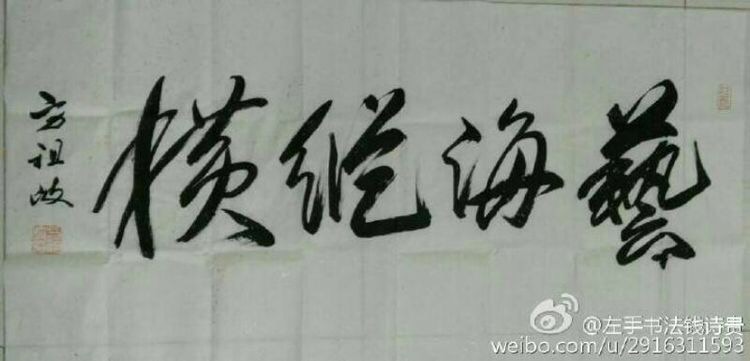 藝海縱橫
方祖岐
@左手书法钱诗贵
weibo.com/u/2916311593